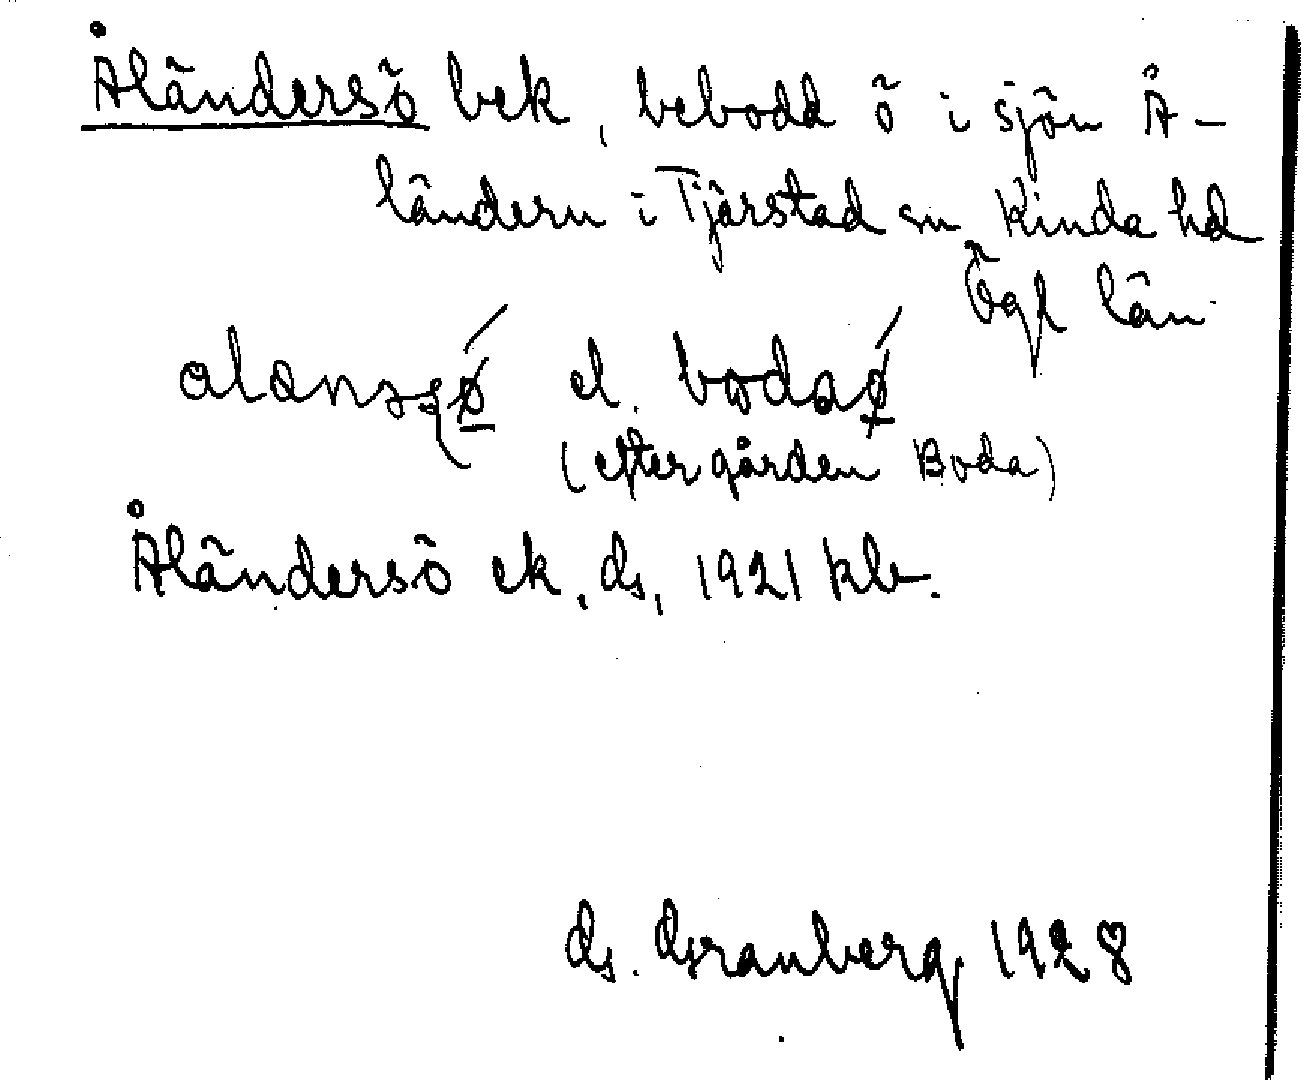 Åländersö bek, bebodd ö i sjön Å-
ländern i Tjärstad sn Kinda hd
Ögl län
el. bodaǿ
(efter gården Boda)
Åländersö ek, G, 1921 kb.
G. Granberg 1928